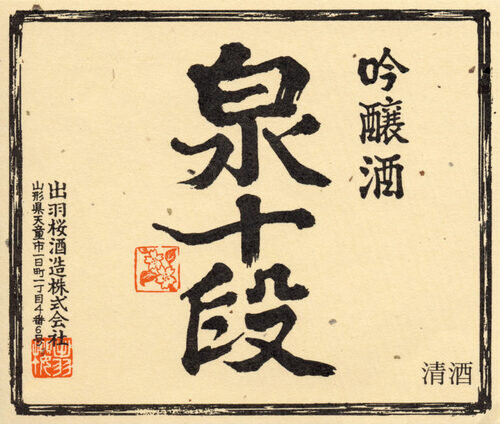 吟醸酒
泉十段
出羽桜酒造株式会社
山形県天童市一日町一丁目4番6号
清酒